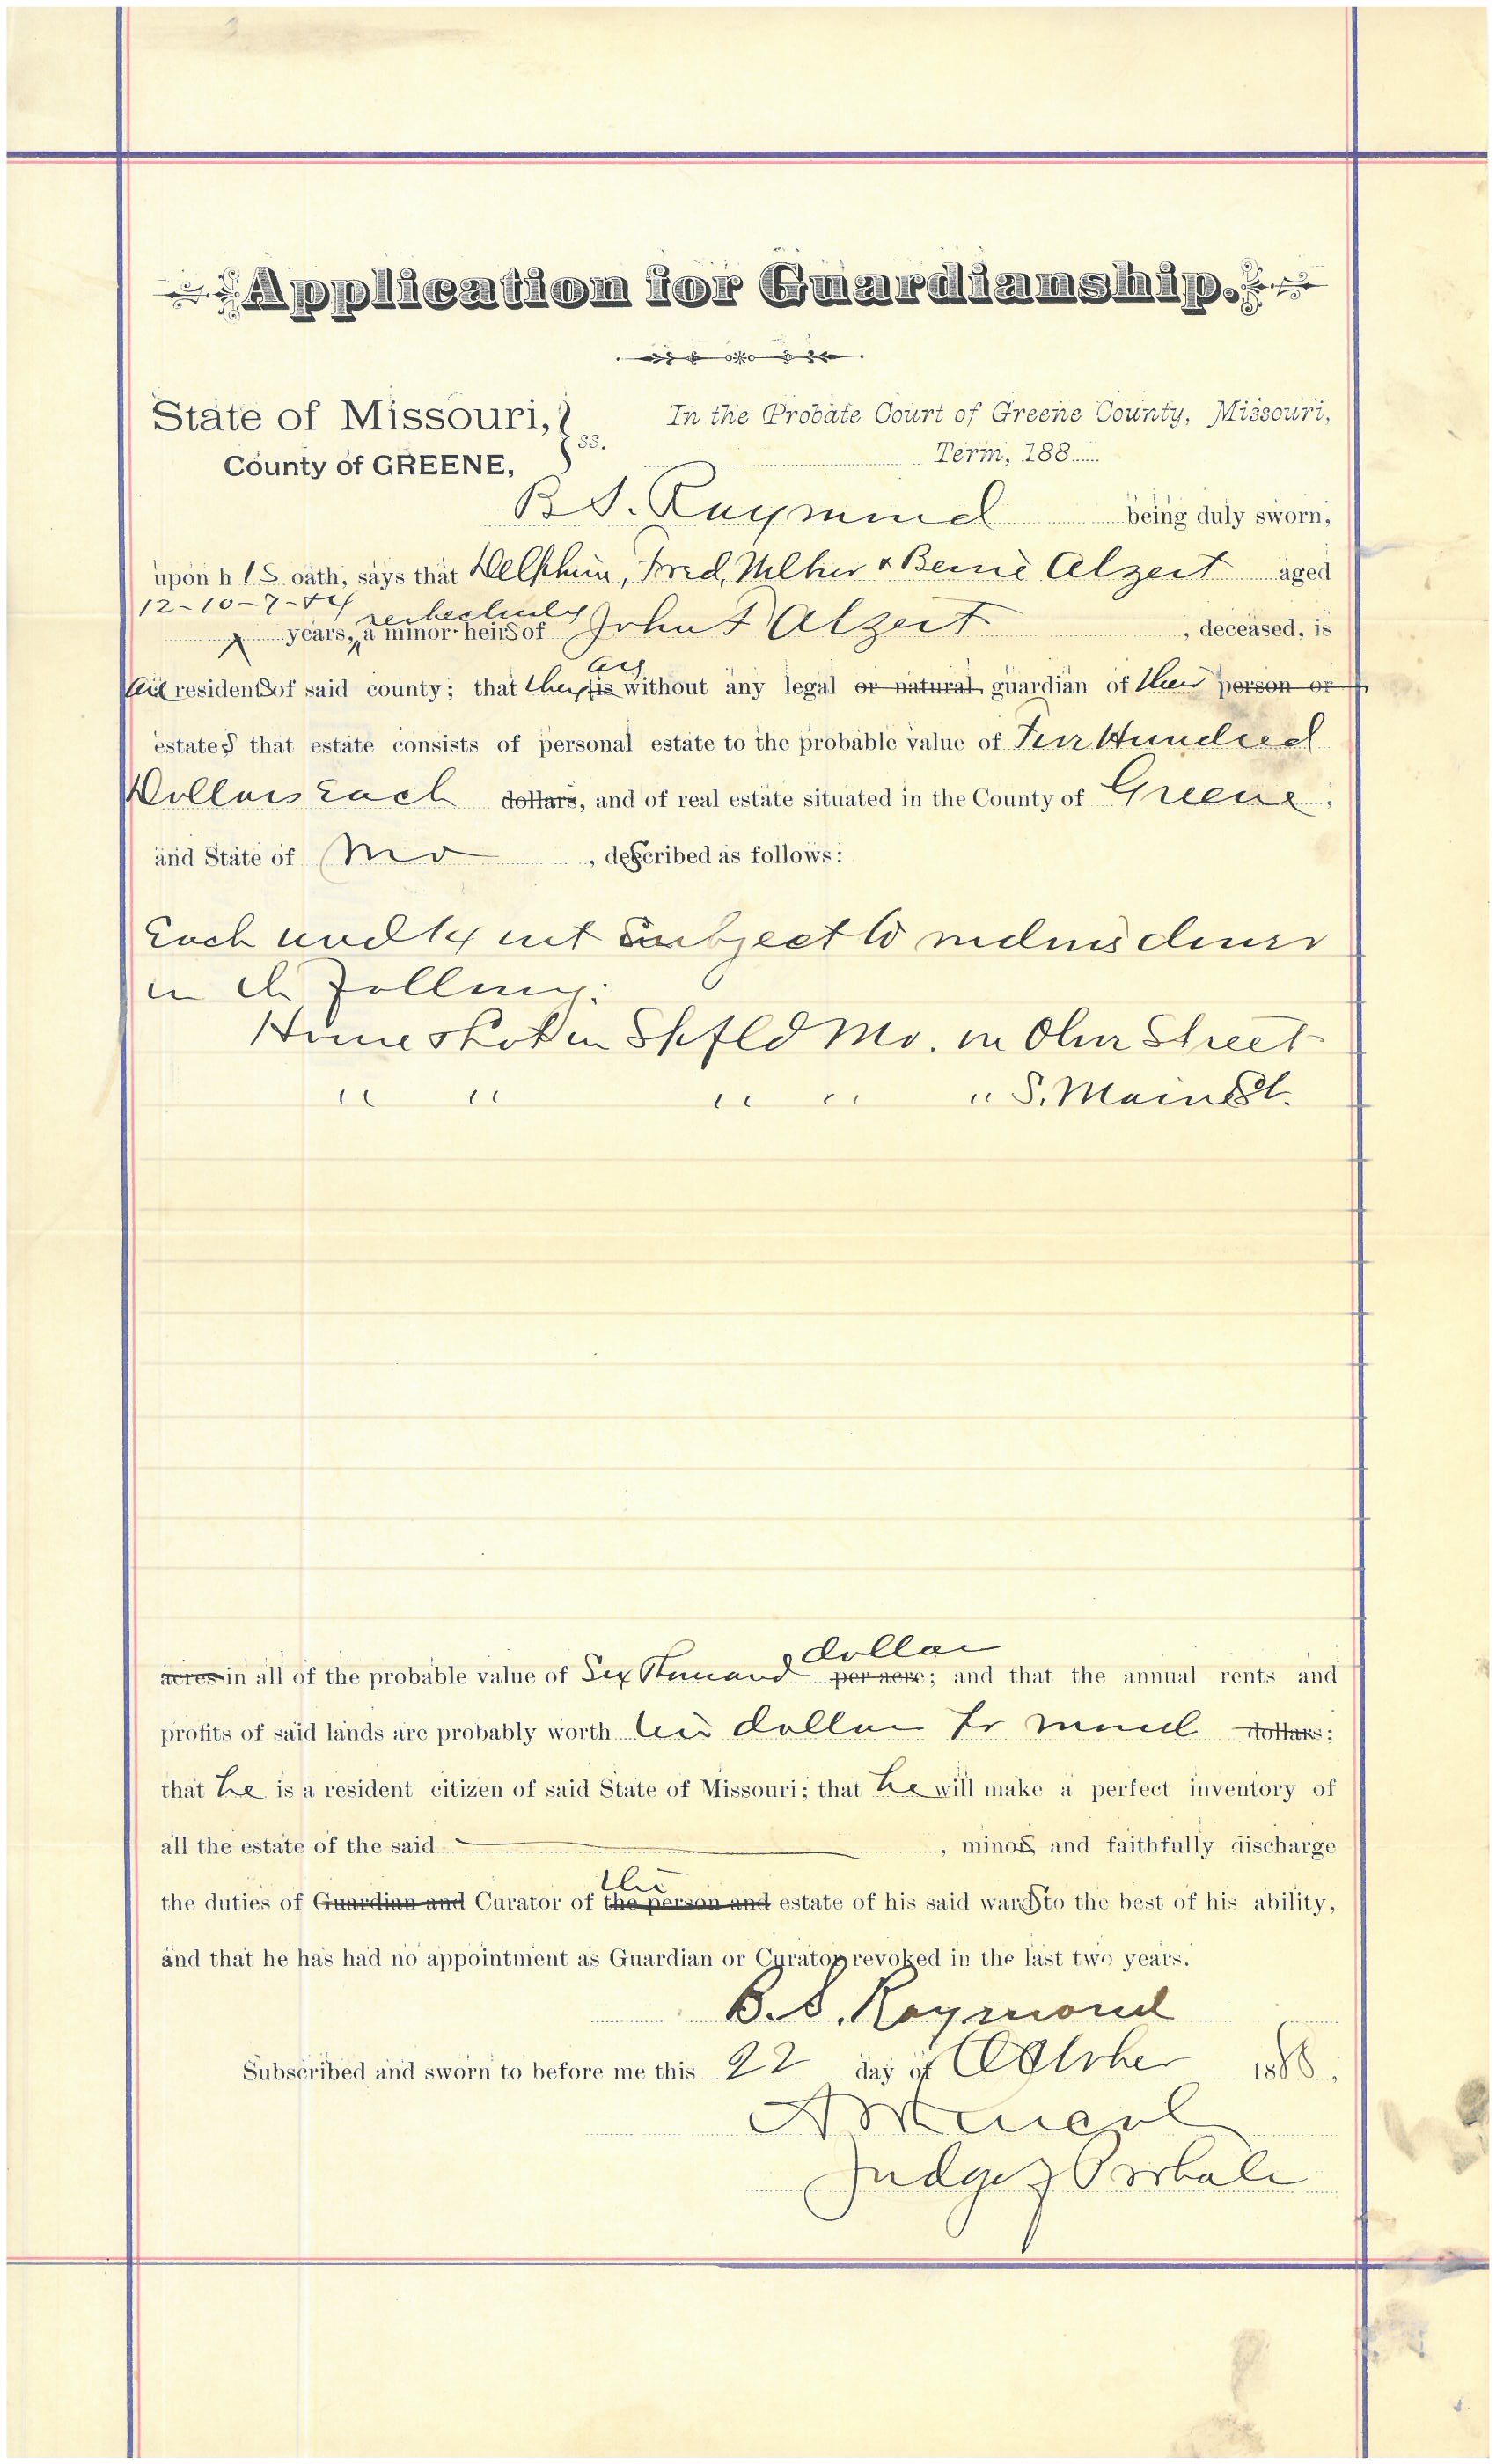 Application for Guardianship.
State of Missouri, } ss. In the Probate Court of Greene County, Missouri,
County of GREENE, Term, 188
B. S. Raymond being duly sworn,
upon his oath, says that Delphin, Fred, & Alzeit aged
12-10-7- respectively
years, a minor heirs of John F Alzeit, deceased, is
residents of said county; that they are is without any legal or natural guardian of their person or
estates that estate consists of personal estate to the probable value of Ten Hundred
Dollars Each dollars, and of real estate situated in the County of Greene,
and State of Mo, described as follows:
Each und 1/4 int Subject to dower
in the following:
House & Lot in Spfld Mo. on Olive Street
" " " " " S. Main St.
dollars
acres in all of the probable value of Six Thousand per acre; and that the annual rents and
profits of said lands are probably worth dollars dollars;
that he is a resident citizen of said State of Missouri; that he will make a perfect inventory of
all the estate of the said, minors, and faithfully discharge
the
the duties of Guardian and Curator of the person and estate of his said wards to the best of his ability,
and that he has had no appointment as Guardian or Curator revoked in the last two years.
B. S. Raymond
Subscribed and sworn to before me this 22 day of October 1888.
Judge of Probate